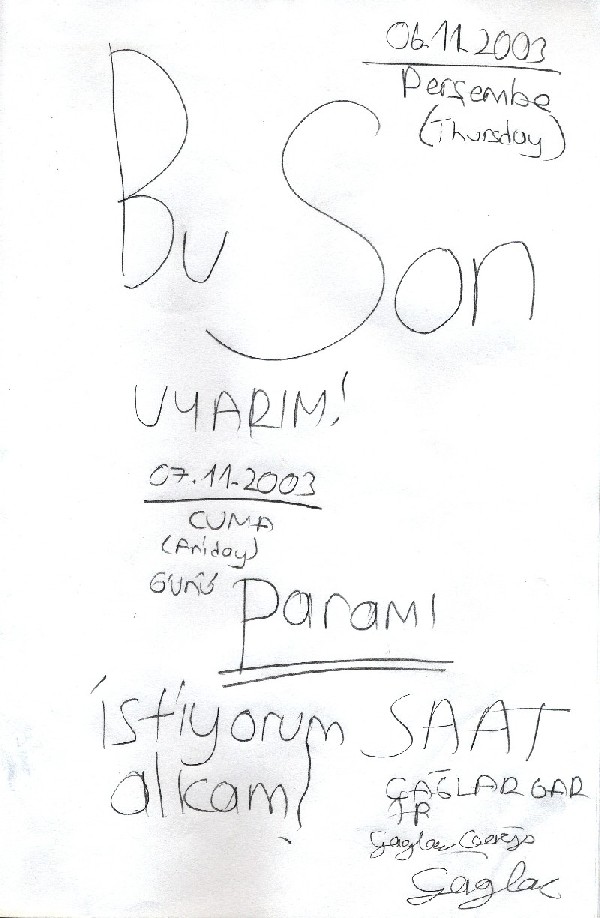 06.11.2003
Perşembe
(Thursday)
Bu Son
UYARIM!
07.11.2003
CUMA
(Friday)
GUNÜ
paramı
istiyorum SAAT
alkam!
ÇAĞLAR
Çağlar
Çağlar